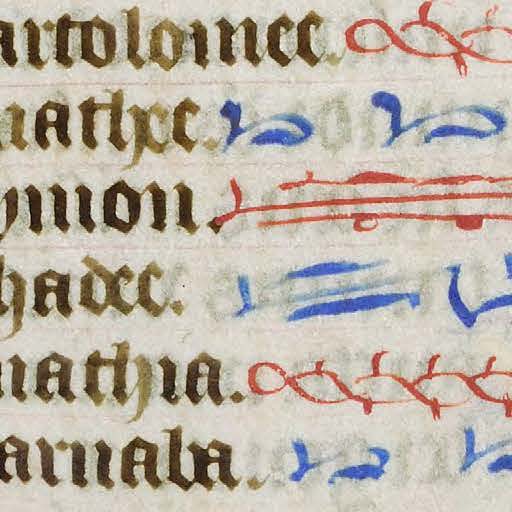 artolomee.
athee.
ymon.
hadee.
mathia.
arnaba.